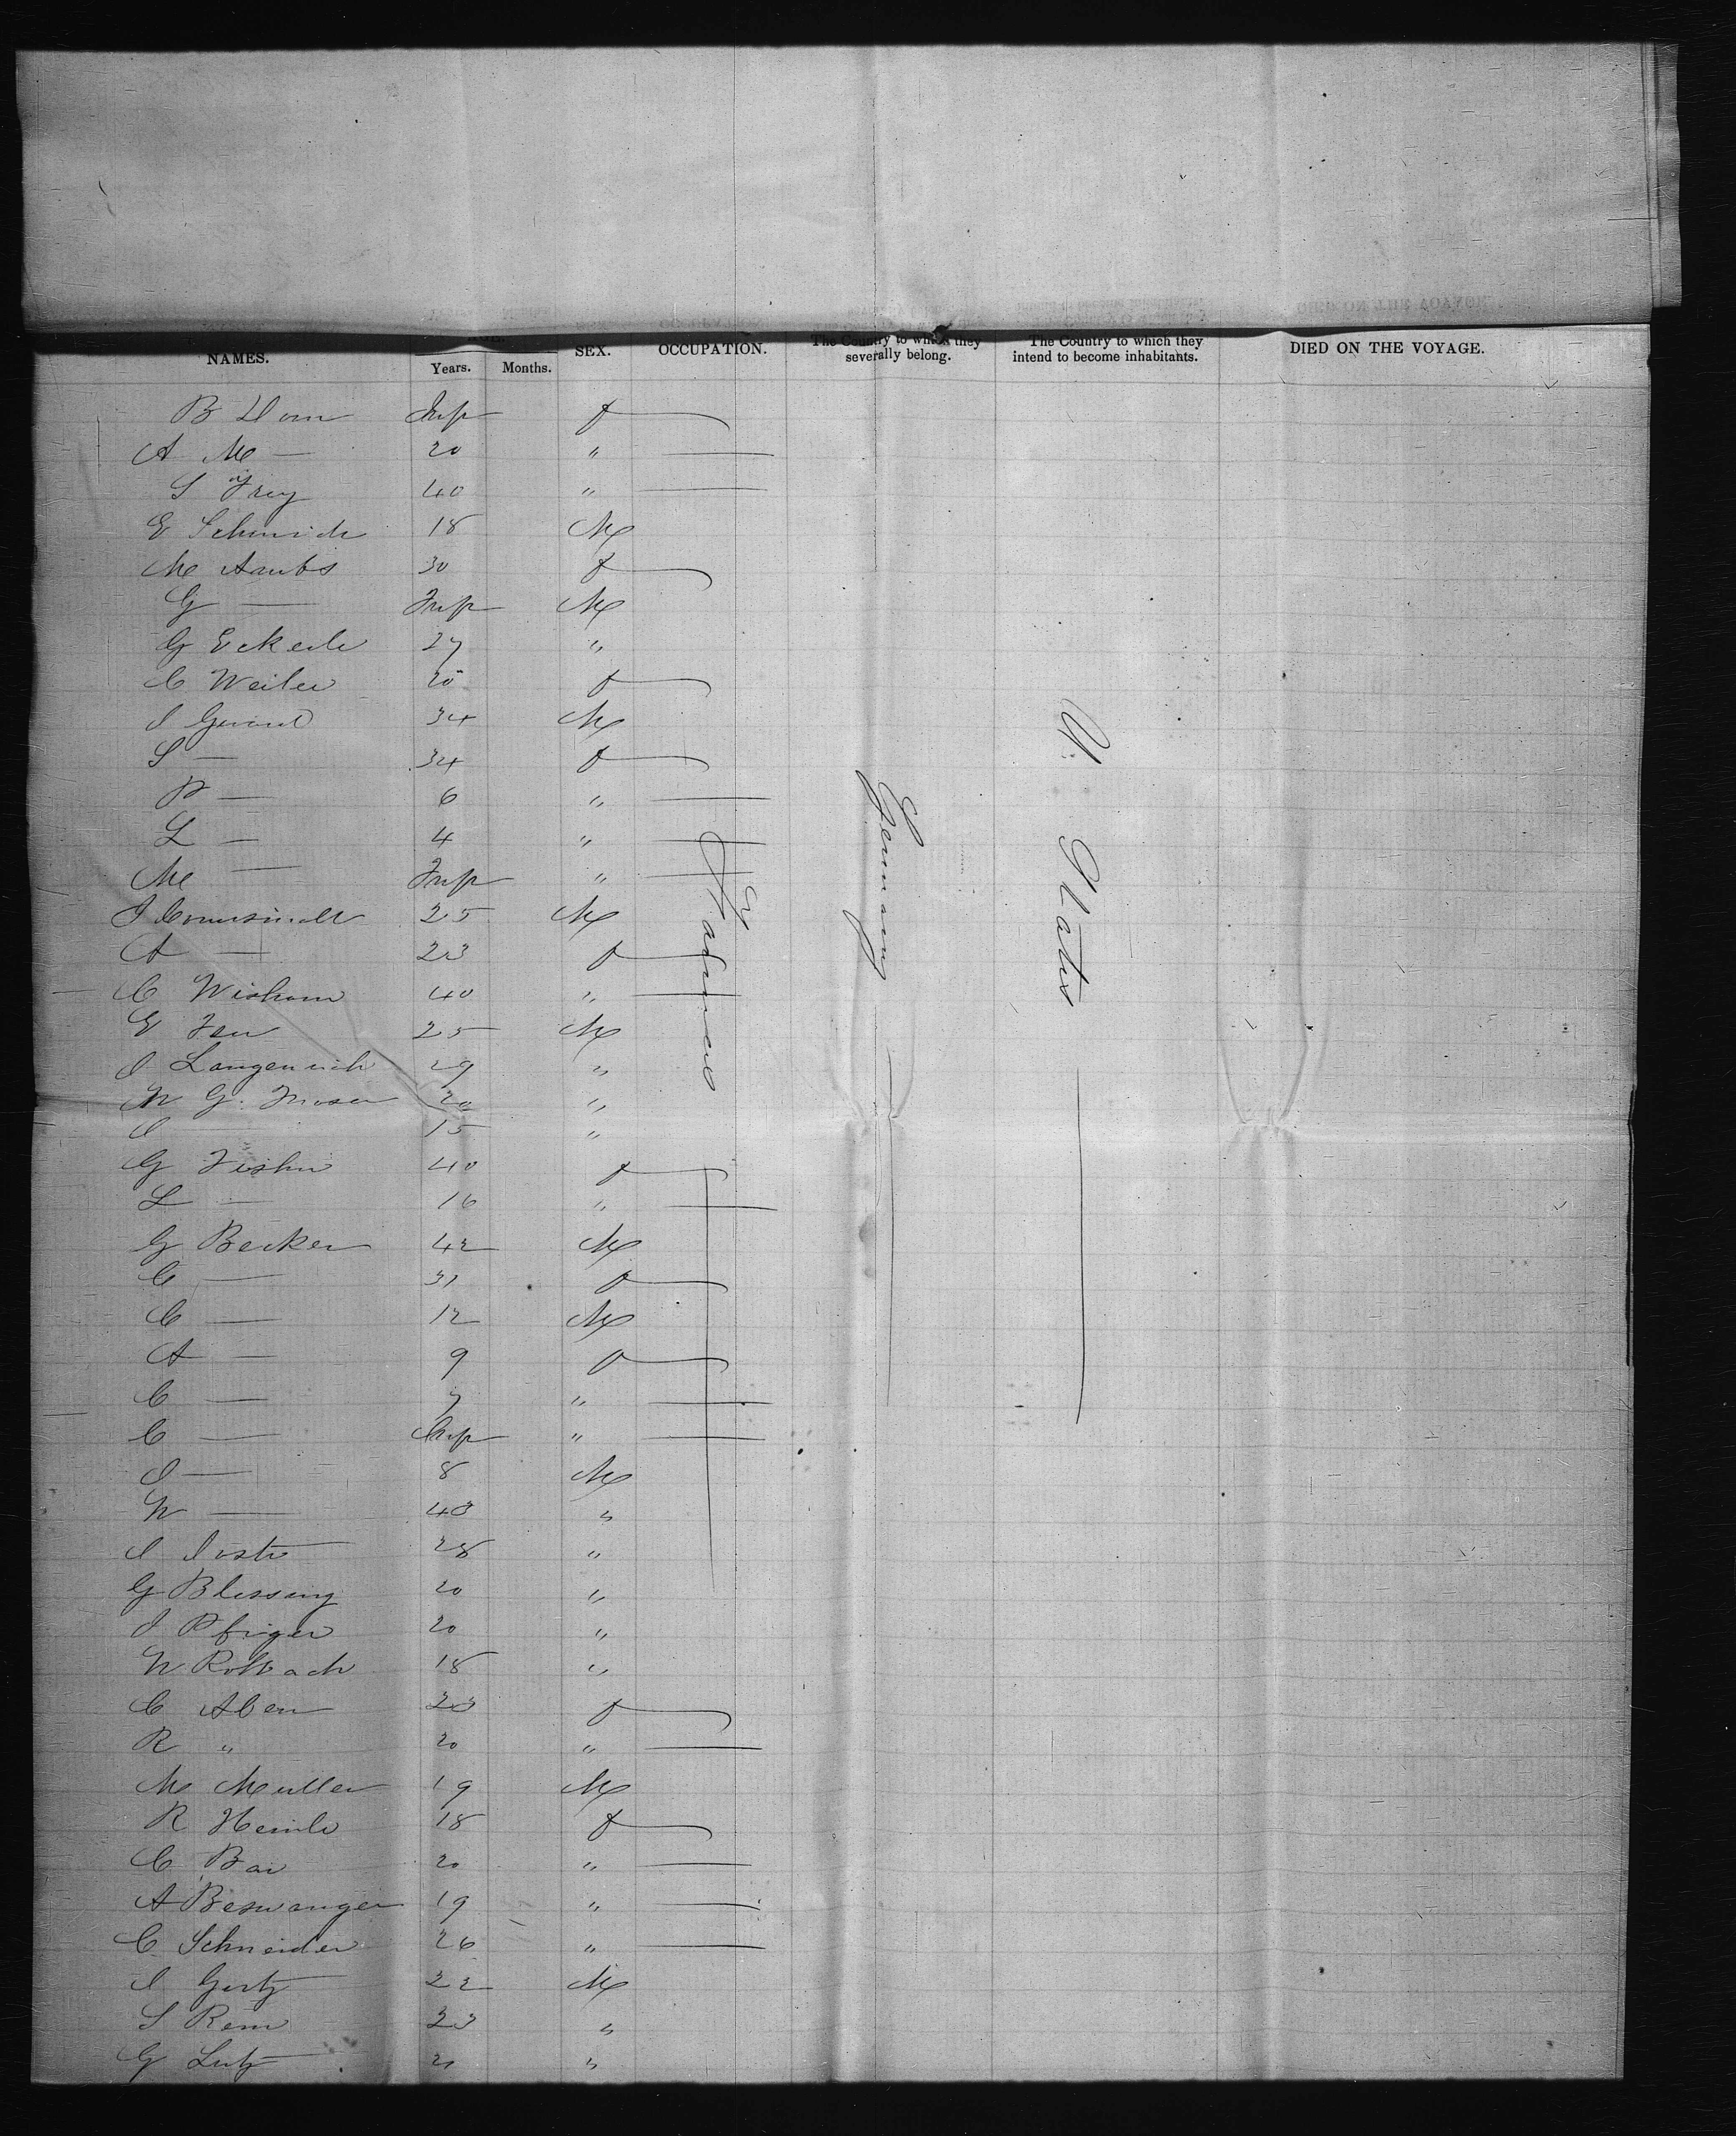 NAMES. AGE. SEX. OCCUPATION. The Country to which they severally belong. The Country to which they intend to become inhabitants. DIED ON THE VOYAGE.
Years. Months.
B Dorn Inf f
A M — 20 "
S Frey 40 "
E Schmidt 18 M
M 30 f
G — Inf M
G Eckerle 27 "
C Weiler 20 f
J 34 M
S — 34 f
P — 6 "
L — 4 "
M — Inf "
J 25 M
A — 23 f
C 40 "
E 25 M
J 29 "
W G. Moser 20 "
J — 15 "
G Fisher 40 f
L — 16 "
G Becker 42 M
C — 31 f
C — 12 M
A — 9 f
C — 7 "
C — Inf "
J — 8 M
W — 40 "
J 28 "
G Blessing 20 "
J 20 "
W 18 "
C Aben 23 f
R " 20 "
M Muller 19 M
R Heinle 18 f
C Bar 20 "
A Beswanger 19 "
C Schneider 26 "
J Gertz 22 M
S Rem 23 "
G Lutz 21 "
Farmers
Germany
U. States